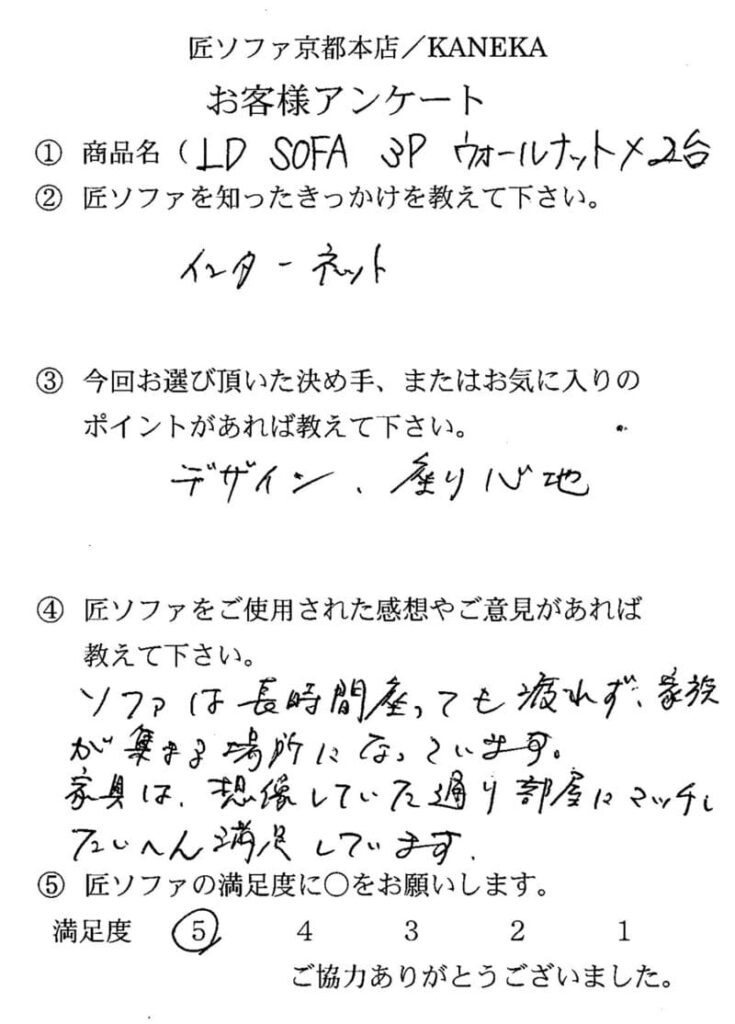 匠ソファ京都本店／KANEKA
お客様アンケート
① 商品名（LD SOFA 3P ウォールナット×2台
② 匠ソファを知ったきっかけを教えて下さい。
インターネット
③ 今回お選び頂いた決め手、またはお気に入りの
ポイントがあれば教えて下さい。
デザイン、座り心地
④ 匠ソファをご使用された感想やご意見があれば
教えて下さい。
ソファは長時間座っても疲れず、家族
が集まる場所になっています。
家具は、想像していた通り部屋にマッチし
たいへん満足しています。
⑤ 匠ソファの満足度に○をお願いします。
満足度 5 4 3 2 1
ご協力ありがとうございました。